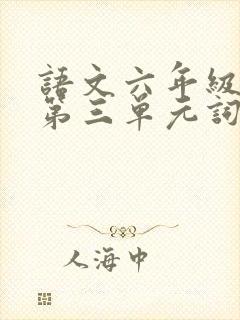 語文六年級
第三單元詞
人海中